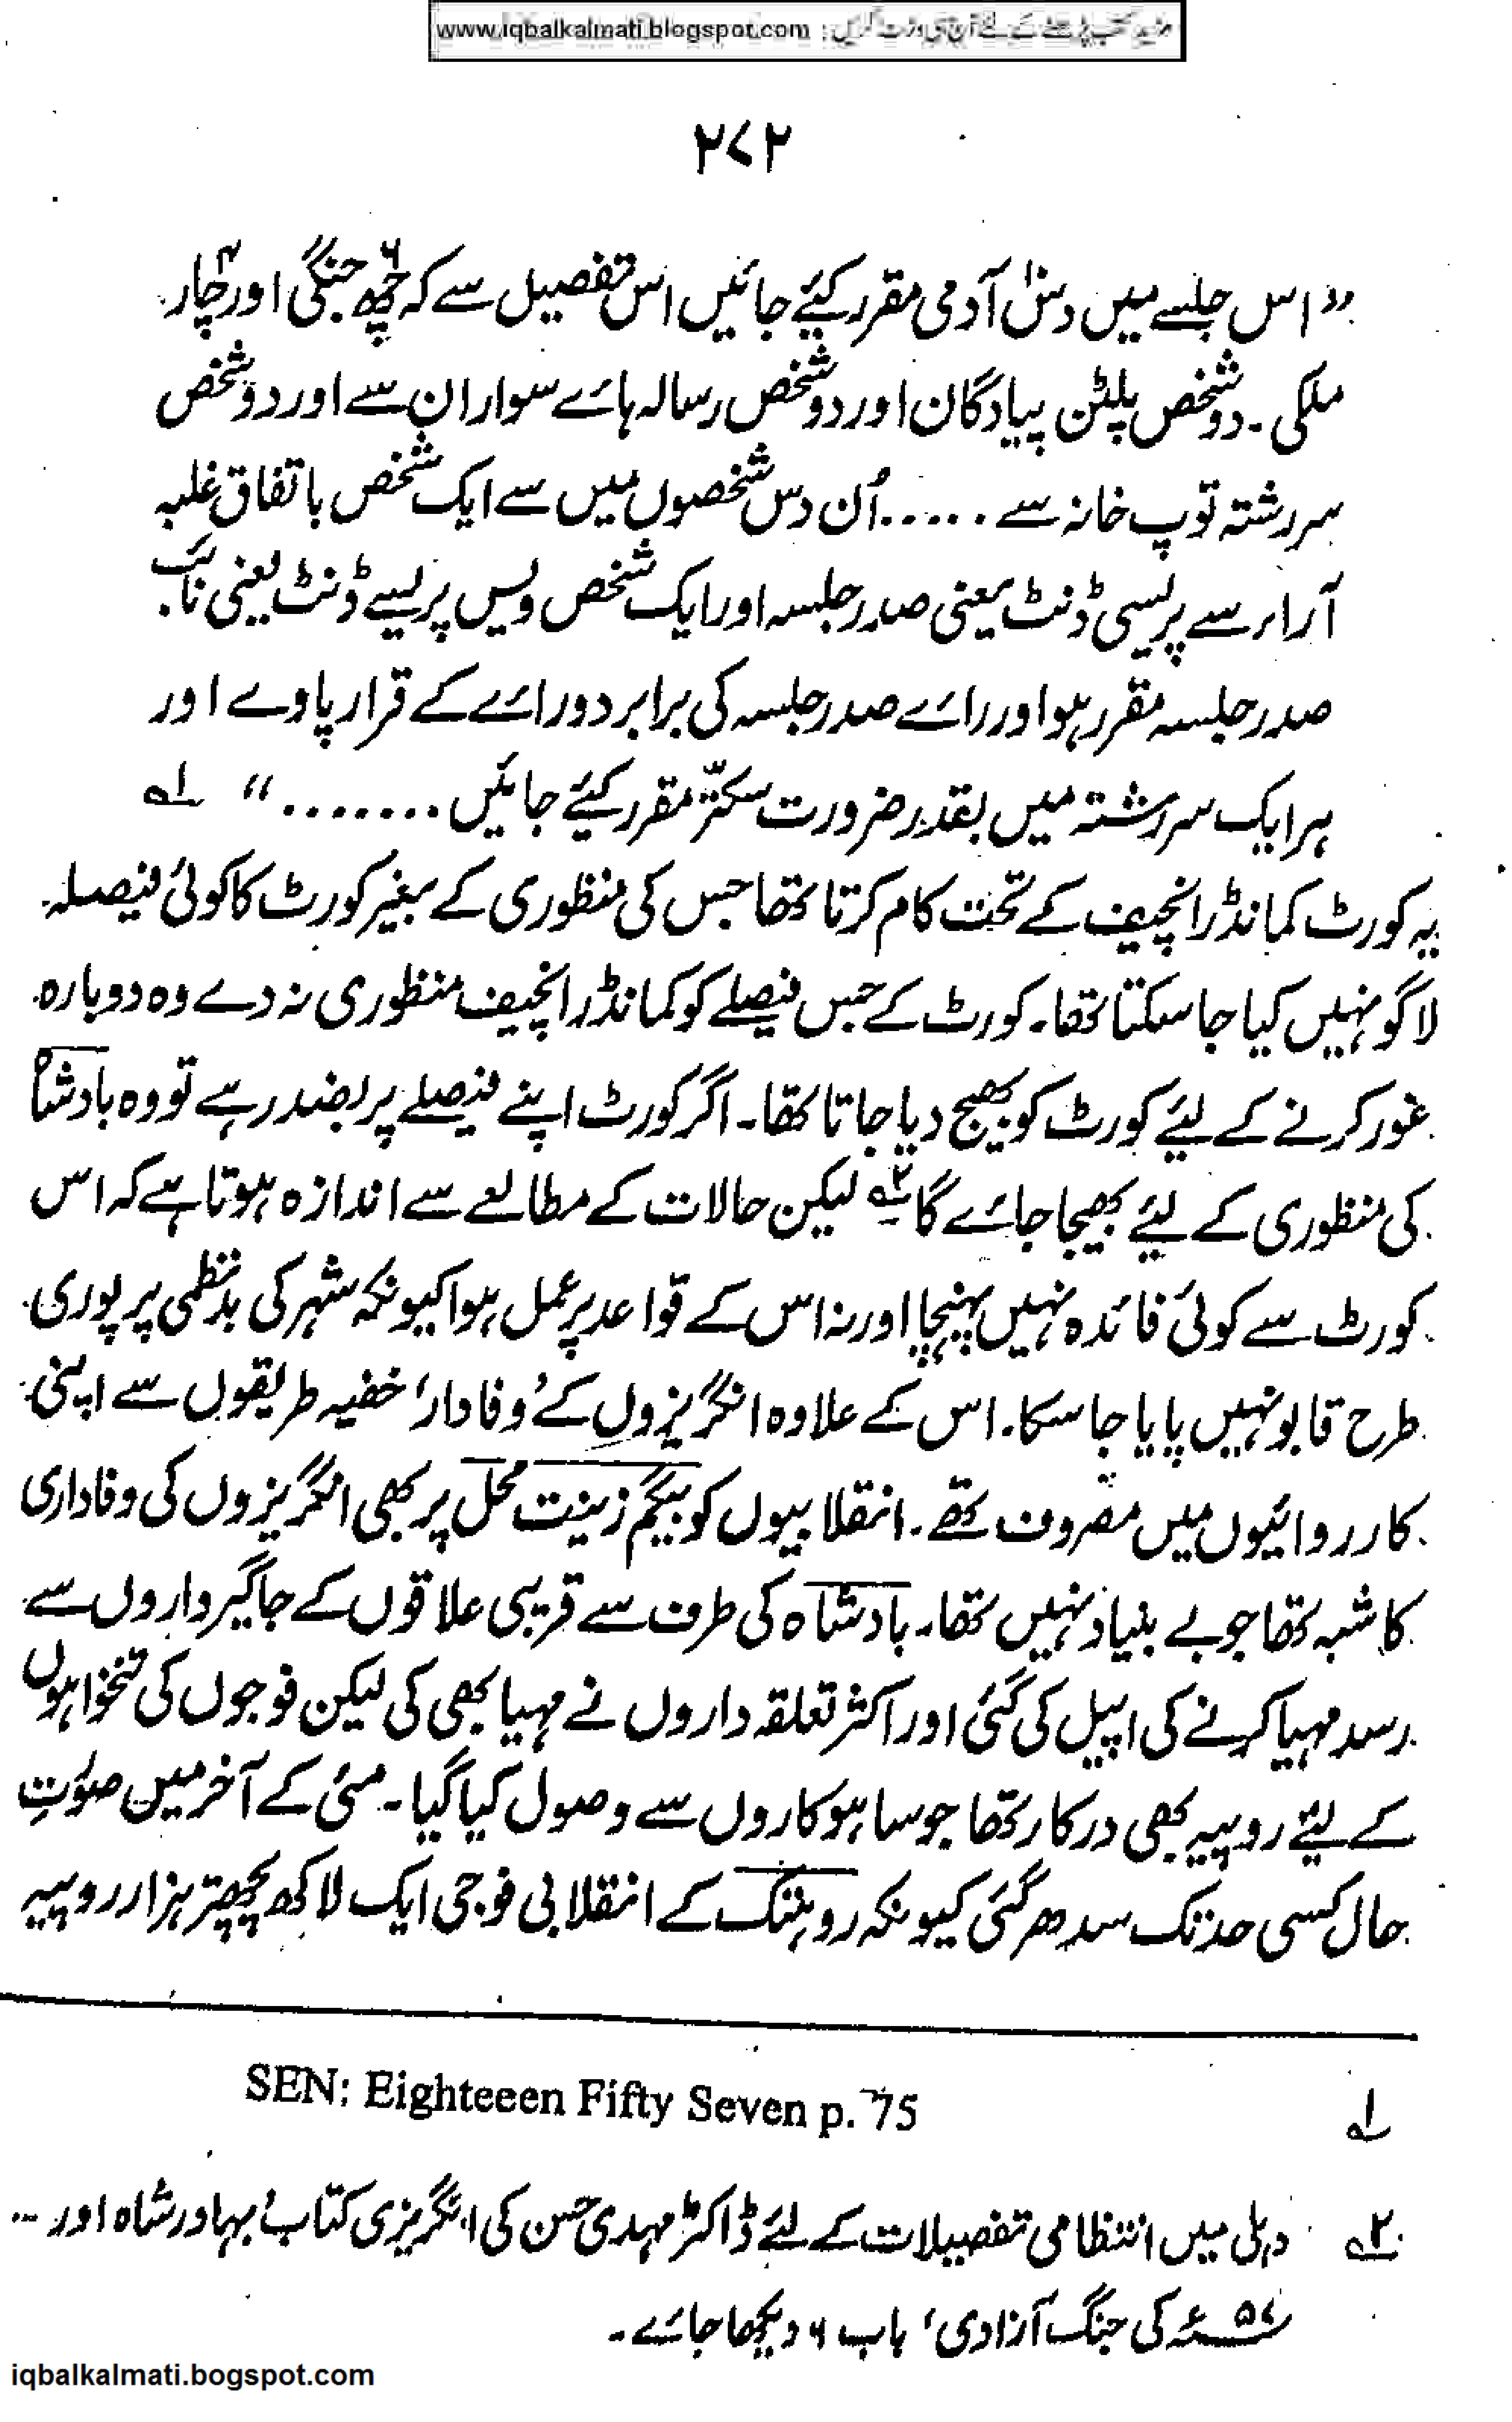 مزید کتب پڑھنے کے لئے آج ہی وزٹ کریں : www.iqbalkalmati.blogspot.com
۲۷۲
"اس جلسے میں دس۱۰ آدمی مقرر کیئے جائیں اس تفصیل سے کہ چھ۶ جنگی اور چار۴
ملکی ۔ دو شخص پلٹن پیادگان اور دو شخص رسالہ ہائے سواران سے اور دو شخص
سررشتہ توپ خانہ سے ...... اُن دس شخصوں میں سے ایک شخص باتفاق غلبہ
آراء سے پریسی ڈنٹ یعنی صدر جلسہ اور ایک شخص ویس پریسے ڈنٹ یعنی نائب
صدر جلسہ مقرر ہو اور رائے صدر جلسہ کی برابر دو رائے کے قرار پاوے اور
ہر ایک سررشتہ میں بقدر ضرورت سکتّر مقرر کیئے جائیں ......." ۱؎
یہ کورٹ کمانڈر انچیف کے تحت کام کرتا تھا جس کی منظوری کے بغیر کورٹ کا کوئی فیصلہ
لاگو نہیں کیا جا سکتا تھا۔ کورٹ کے جس فیصلے کو کمانڈر انچیف منظوری نہ دے وہ دوبارہ
غور کرنے کے لیئے کورٹ کو بھیج دیا جاتا تھا۔ اگر کورٹ اپنے فیصلے پر بضد رہے تو وہ بادشاہ
کی منظوری کے لیئے بھیجا جائے گا ۲؎ لیکن حالات کے مطالعے سے اندازہ ہوتا ہے کہ اس
کورٹ سے کوئی فائدہ نہیں پہنچا اور نہ اس کے قواعد پر عمل ہوا کیونکہ شہر کی بدنظمی پر پوری
طرح قابو نہیں پایا جا سکا۔ اس کے علاوہ انگریزوں کے 'وفادار' خفیہ طریقوں سے اپنی
کارروائیوں میں مصروف تھے۔ انقلابیوں کو بیگم زینت محل پر بھی انگریزوں کی وفاداری
کا شبہ تھا جو بے بنیاد نہیں تھا۔ بادشاہ کی طرف سے قریبی علاقوں کے جاگیرداروں سے
رسد مہیا کرنے کی اپیل کی گئی اور اکثر تعلقہ داروں نے مہیا بھی کی لیکن فوجوں کی تنخواہوں
کے لیئے روپیہ بھی درکار تھا جو ساہوکاروں سے وصول کیا گیا۔ مئی کے آخر میں صورتِ
حال کسی حد تک سدھر گئی کیونکہ روہتک کے انقلابی فوجی ایک لاکھ پچھتر ہزار روپیہ
۱؎ SEN: Eighteeen Fifty Seven p. 75
۲؎ دہلی میں انتظامی تفصیلات کے لئے ڈاکٹر مہدی حسن کی انگریزی کتاب 'بہادر شاہ اور ...
۵۷ء کی جنگ آزادی' باب ۶ دیکھا جائے۔
iqbalkalmati.bogspot.com